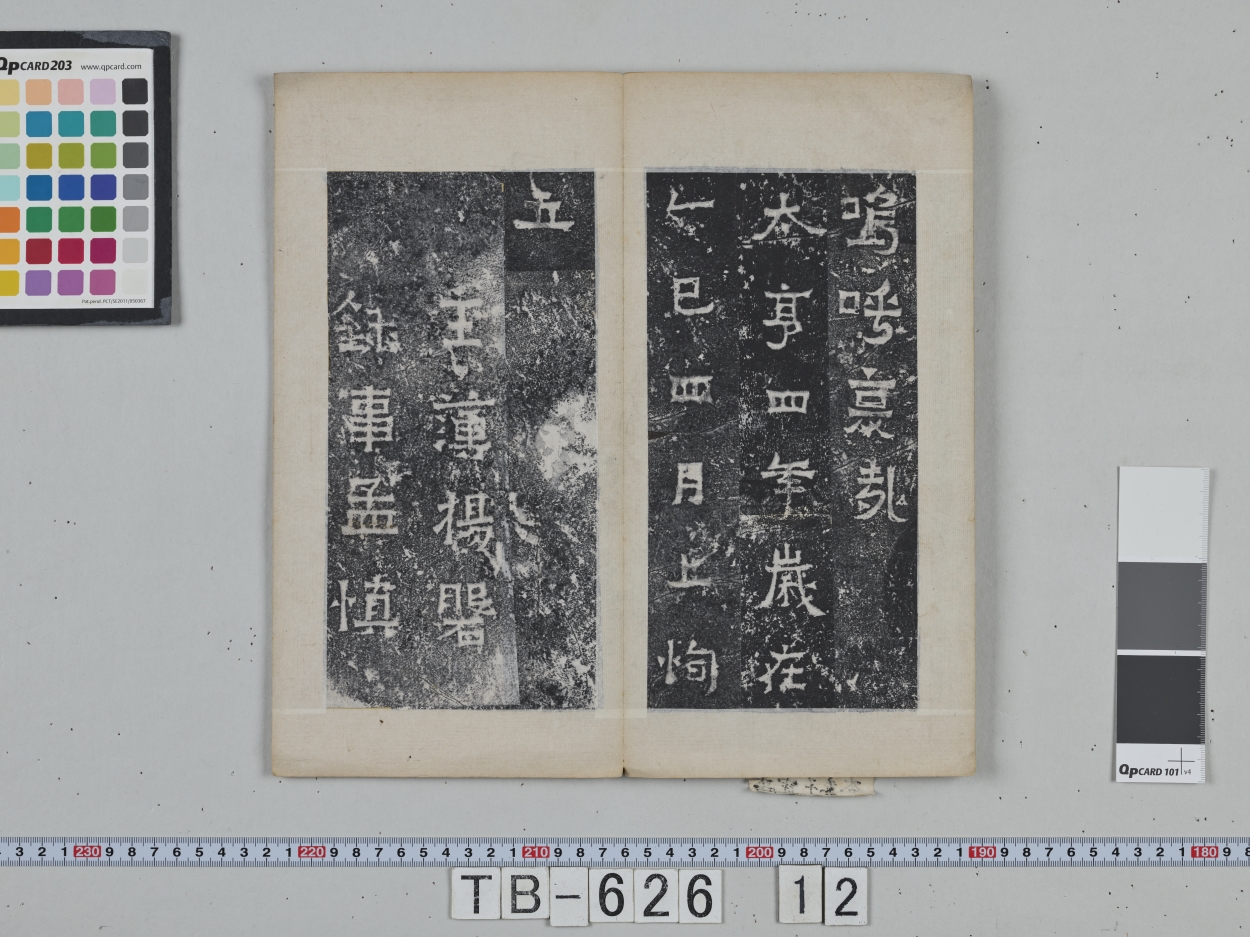 嗚呼哀哉
太亨四年歲在
乙巳四月上恂
立
主簿楊磐
錄事孟慎
QpCARD 203 www.qpcard.com
QpCARD 101 v4
3 2 1 230 9 8 7 6 5 4 3 2 1 220 9 8 7 6 5 4 3 2 1 210 9 8 7 6 5 4 3 2 1 200 9 8 7 6 5 4 3 2 1 190 9 8 7 6 5 4 3 2 1 180 9 8
TB-626 12